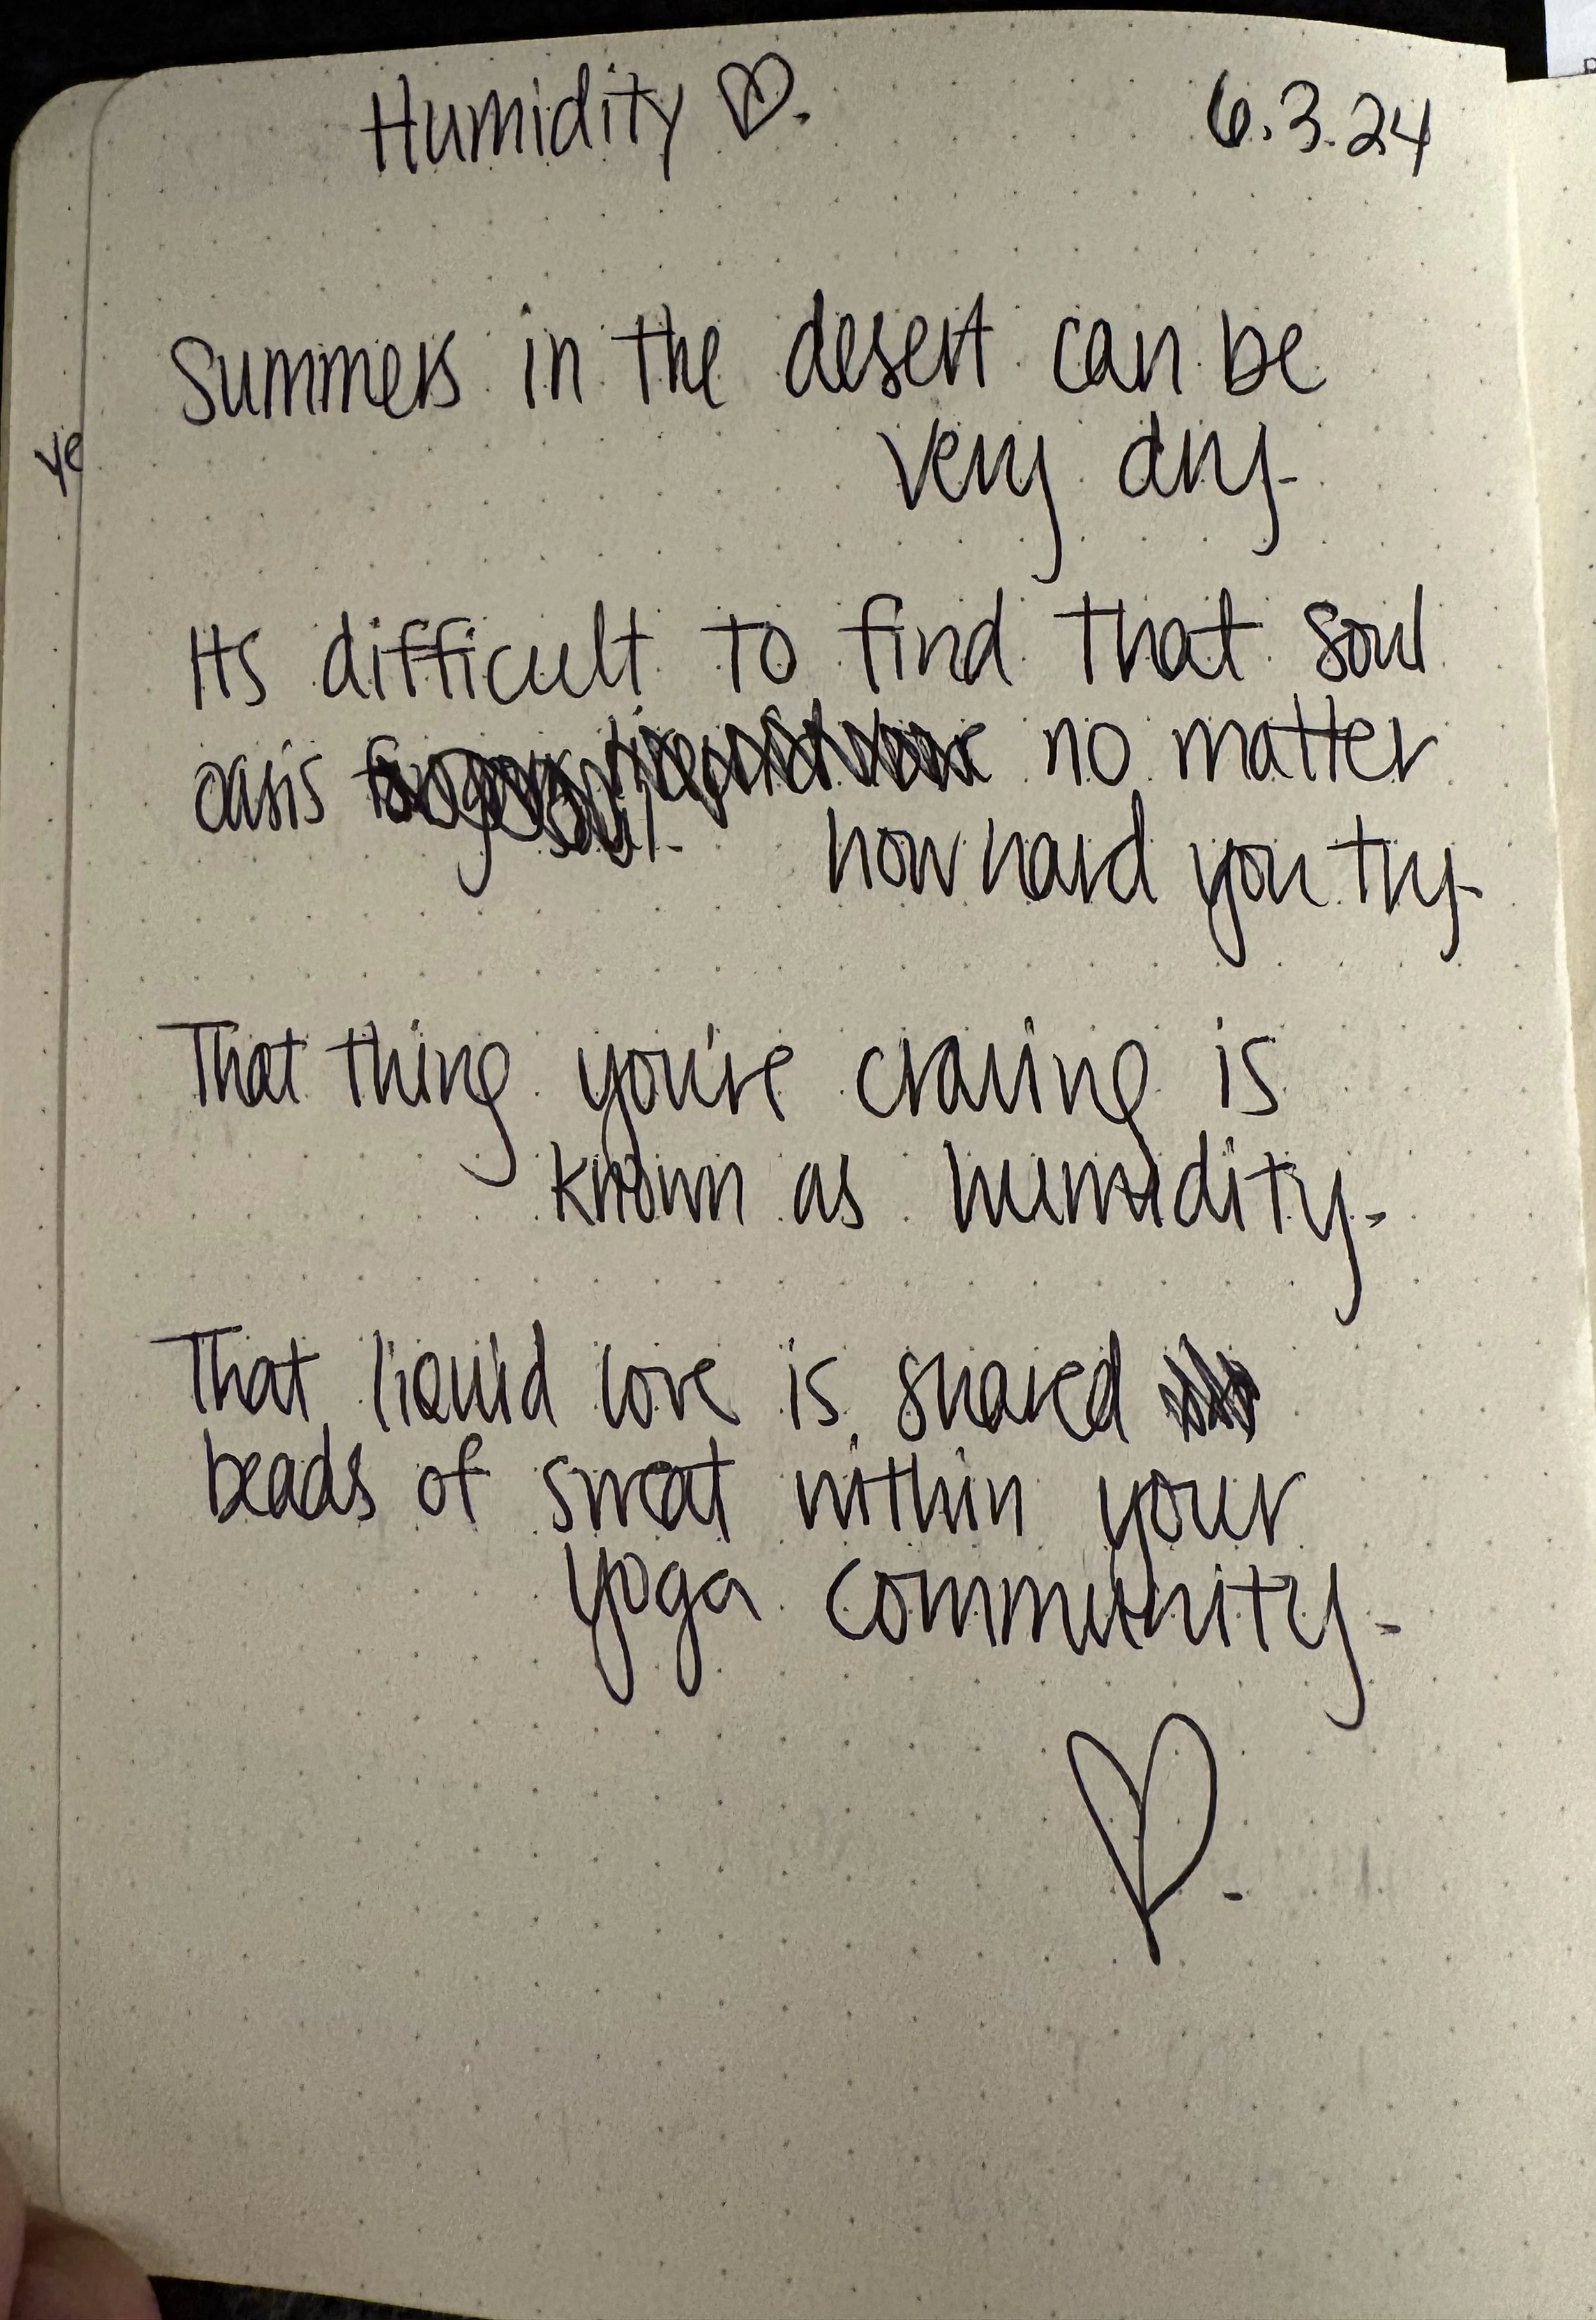 Humidity ♡. 6.3.24
Summers in the desert can be
very dry.
Its difficult to find that soul
oasis no matter
how hard you try.
That thing you're craving is
known as humidity.
That liquid love is shared
beads of sweat within your
yoga community.
♡.
ye